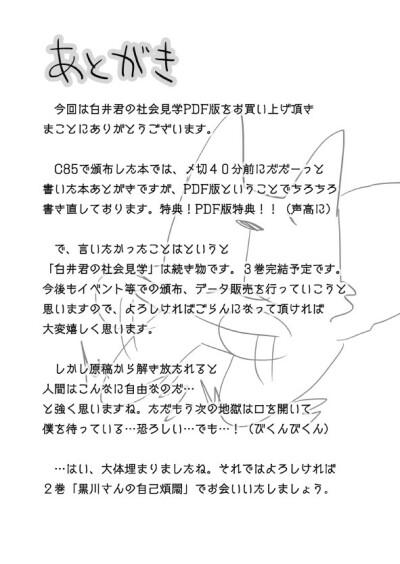 あとがき
今回は白井君の社会見学PDF版をお買い上げ頂き
まことにありがとうございます。
C85で頒布した本では、〆切40分前にだだーっと
書いた本あとがきですが、PDF版ということでちろちろ
書き直しております。特典！PDF版特典！！（声高に）
で、言いたかったことはというと
「白井君の社会見学」は続き物です。３巻完結予定です。
今後もイベント等での頒布、データ販売を行っていこうと
思いますので、よろしければごらんになって頂ければ
大変嬉しく思います。
しかし原稿から解き放たれると
人間はこんなに自由なのだ…
と強く思いますね。ただもう次の地獄は口を開いて
僕を待っている…恐ろしい…でも…！（びくんびくん）
…はい、大体埋まりましたね。それではよろしければ
２巻「黒川さんの自己煩悶」でお会いいたしましょう。